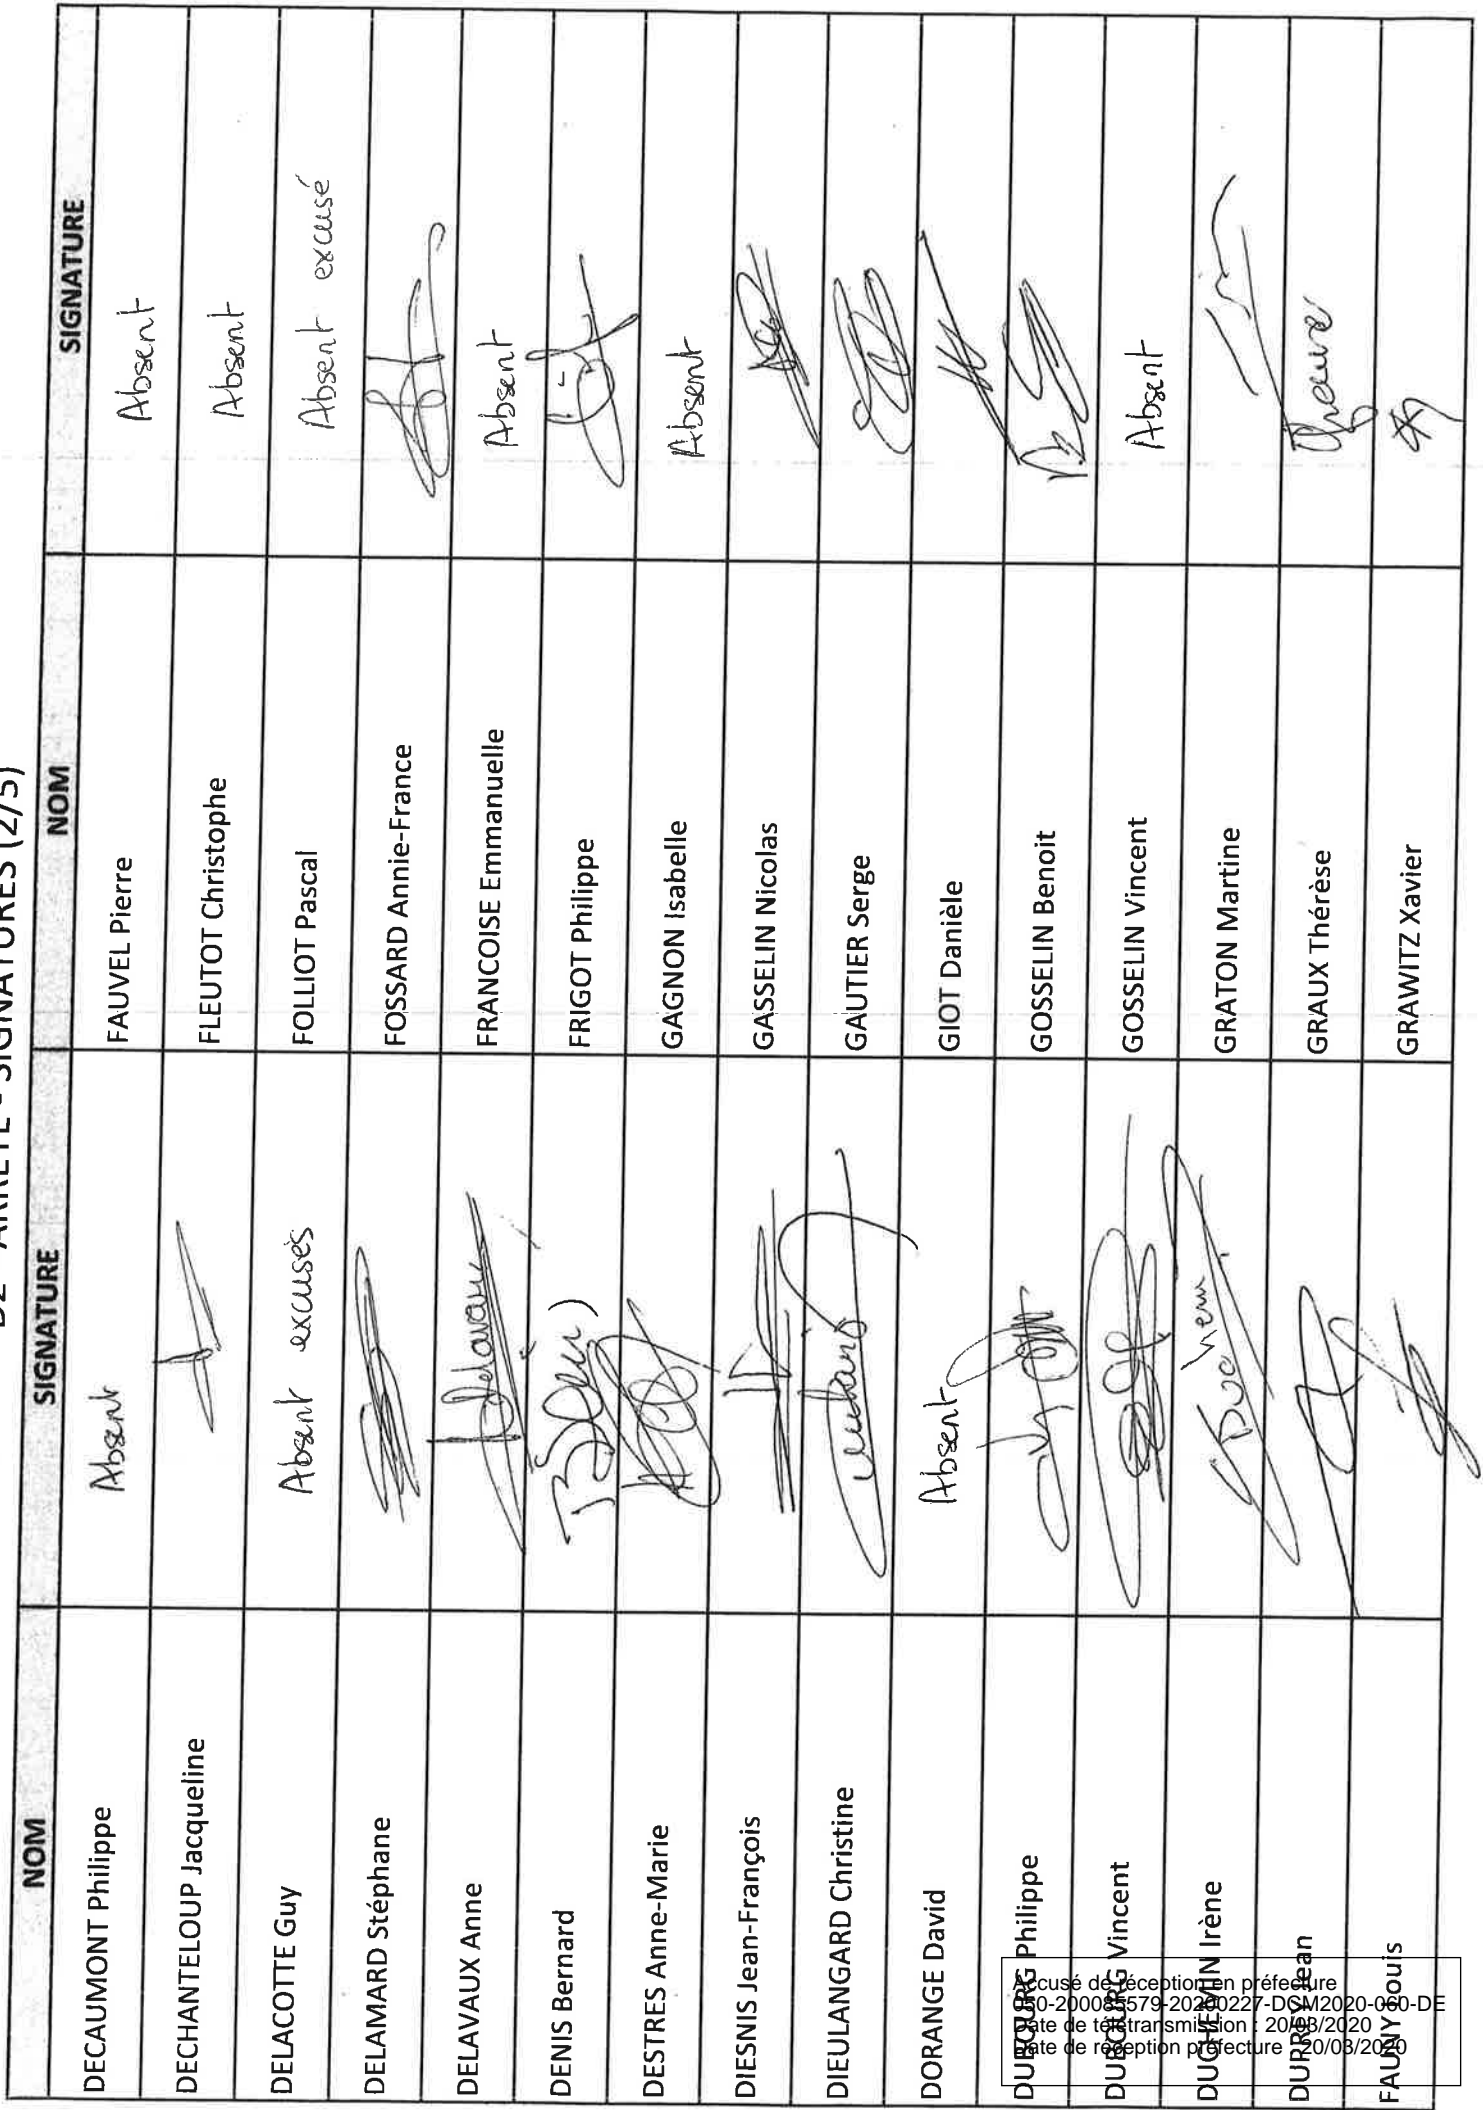 ARRETE - SIGNATURES (2/5)
NOM SIGNATURE NOM SIGNATURE
DECAUMONT Philippe Absent FAUVEL Pierre Absent
DECHANTELOUP Jacqueline FLEUTOT Christophe Absent
DELACOTTE Guy Absent excusés FOLLIOT Pascal Absent excusé
DELAMARD Stéphane FOSSARD Annie-France
DELAVAUX Anne Delavaux FRANCOISE Emmanuelle Absent
DENIS Bernard FRIGOT Philippe
DESTRES Anne-Marie GAGNON Isabelle Absent
DIESNIS Jean-François GASSELIN Nicolas
DIEULANGARD Christine GAUTIER Serge
DORANGE David Absent GIOT Danièle
DUBOURG Philippe GOSSELIN Benoit
DUBOURG Vincent GOSSELIN Vincent Absent
DUCHEMIN Irène GRATON Martine
DURREY Jean GRAUX Thérèse
FAUNY Louis GRAWITZ Xavier
Accusé de réception en préfecture
050-200085579-20200227-DCM2020-060-DE
Date de télétransmission : 20/03/2020
Date de réception préfecture : 20/03/2020